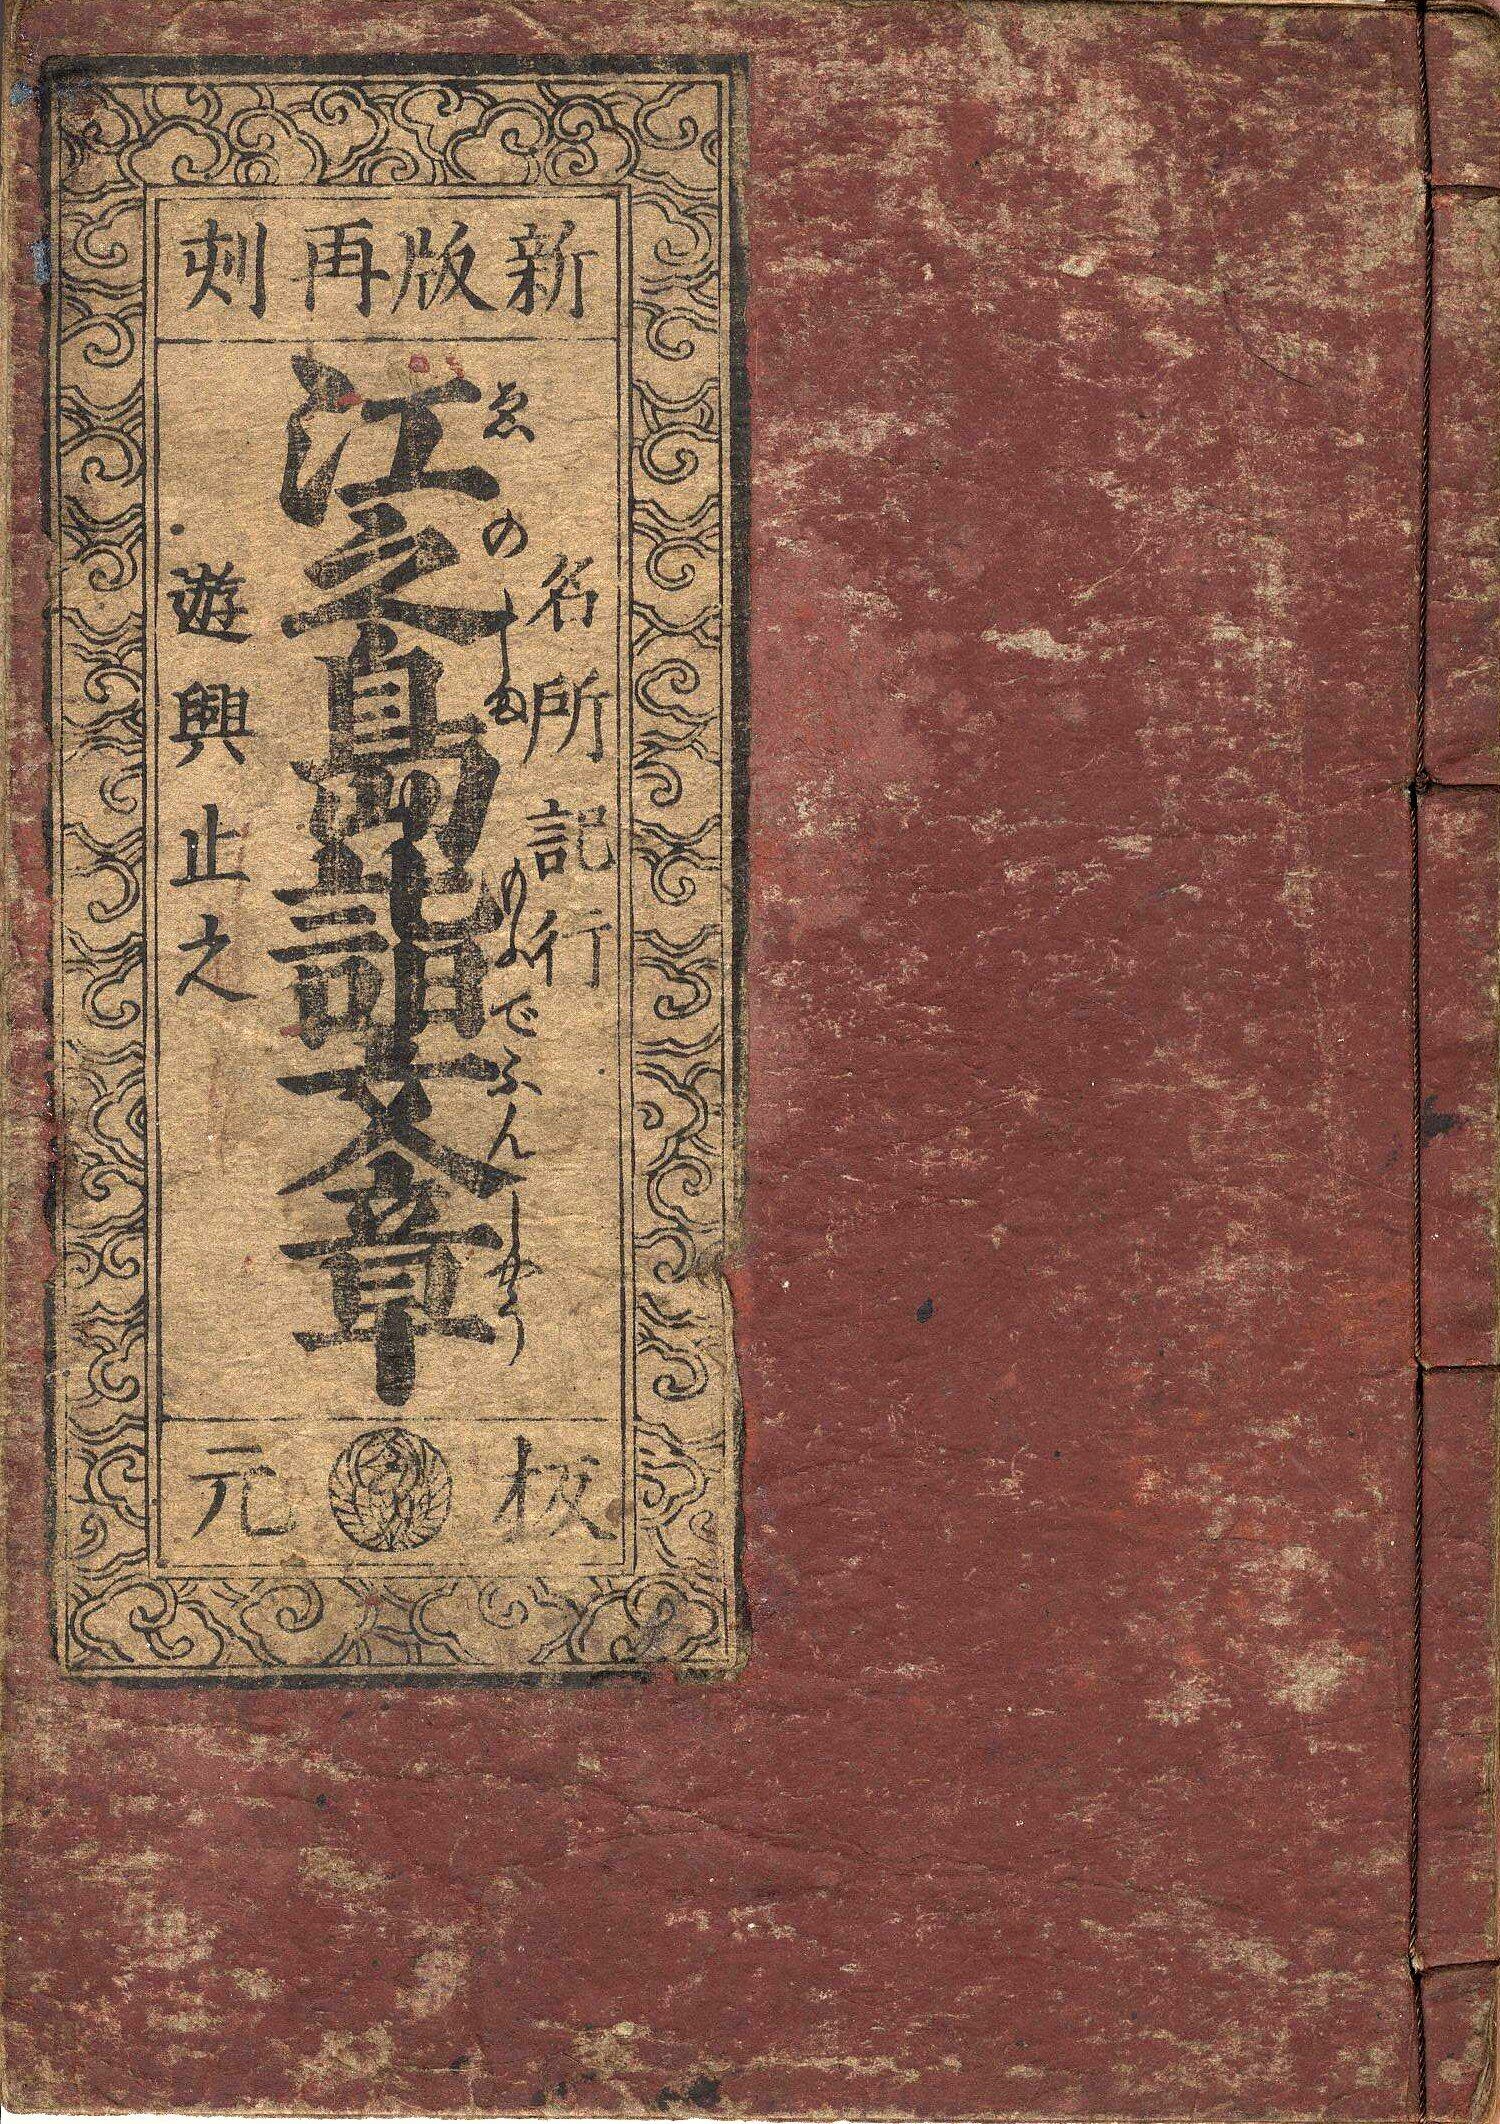 新版再刻
名所記行
ゑのしまもふでふんしやう
江之島詣文章
遊興止之
板元